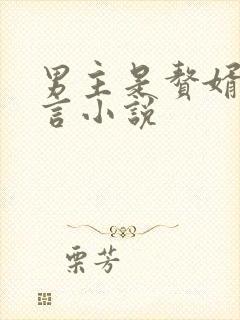 男主是赘婿
言小说
栗芳